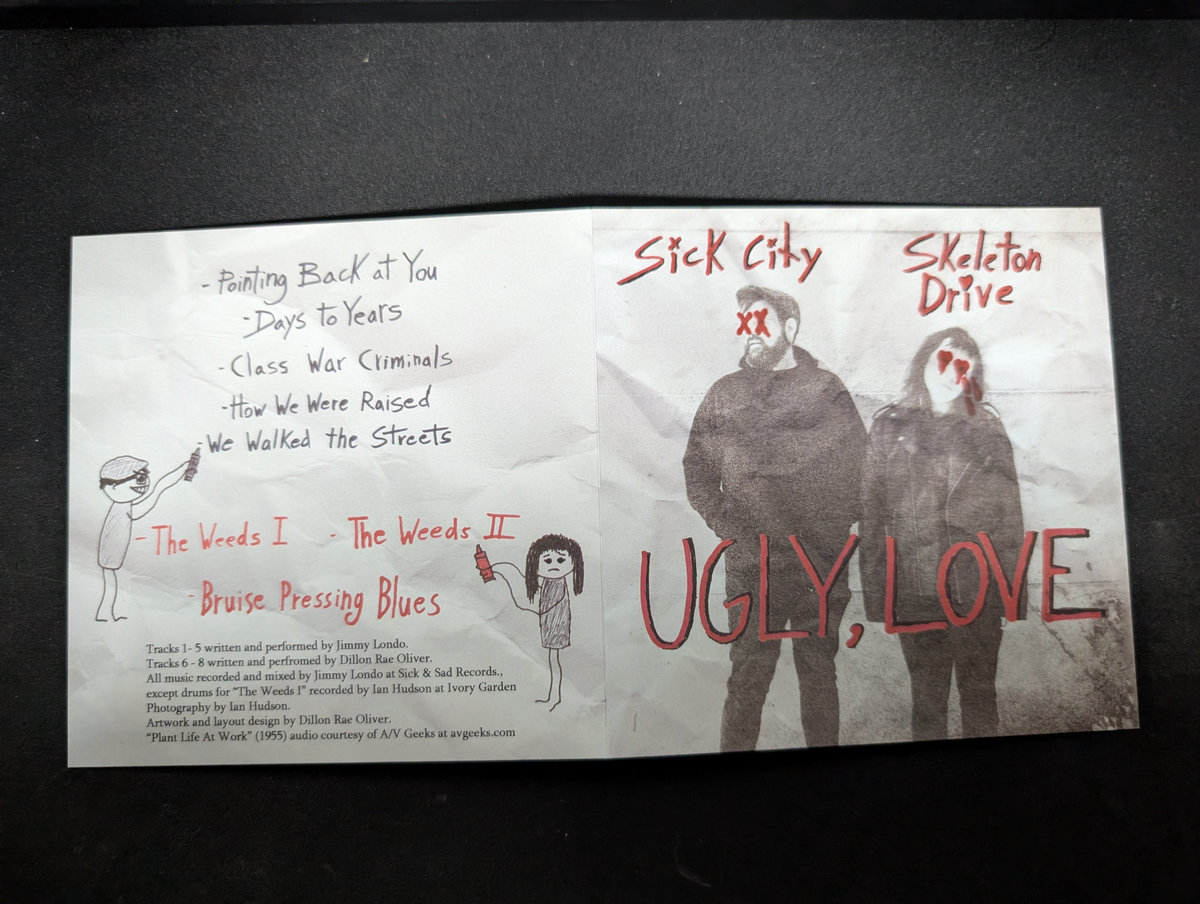 - Pointing Back at You
- Days to Years
- Class War Criminals
- How We Were Raised
- We Walked the Streets
- The Weeds I - The Weeds II
- Bruise Pressing Blues
Tracks 1- 5 written and performed by Jimmy Londo.
Tracks 6 - 8 written and perfromed by Dillon Rae Oliver.
All music recorded and mixed by Jimmy Londo at Sick & Sad Records.,
except drums for “The Weeds I” recorded by Ian Hudson at Ivory Garden
Photography by Ian Hudson.
Artwork and layout design by Dillon Rae Oliver.
“Plant Life At Work” (1955) audio courtesy of A/V Geeks at avgeeks.com
Sick City
Skeleton
Drive
XX
UGLY, LOVE